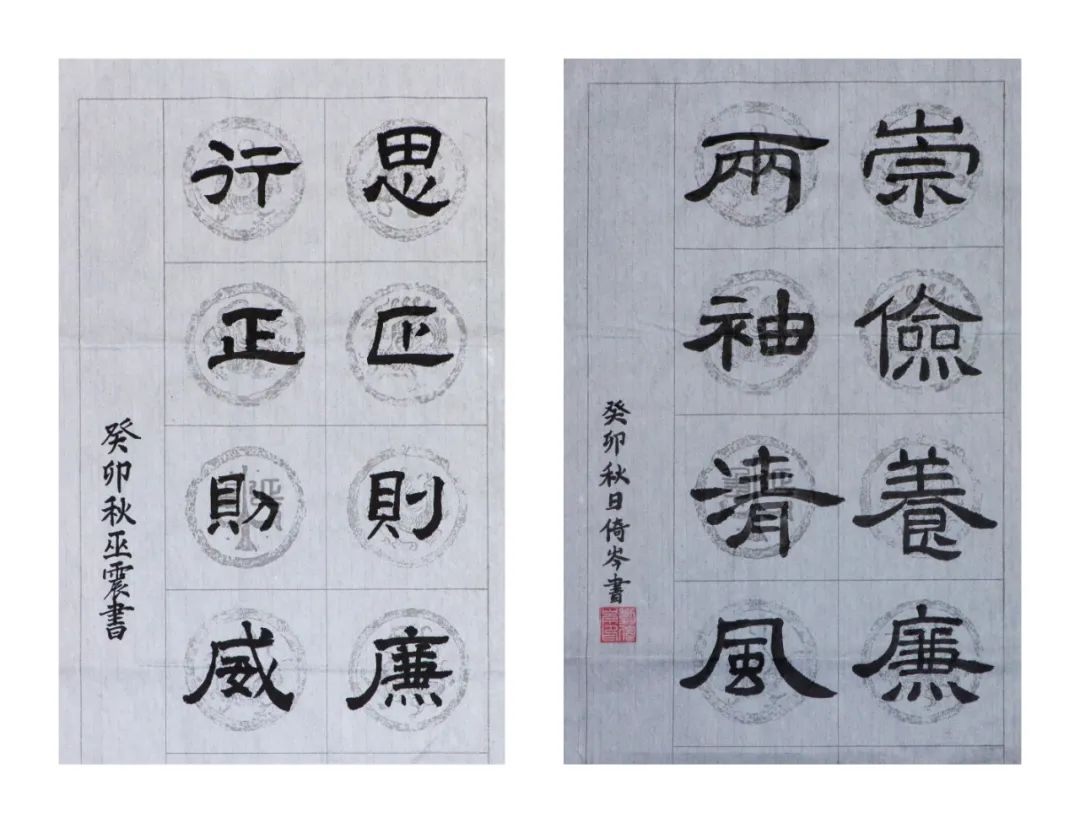 思 則廉
行正 威
癸卯秋巫震書
崇儉養廉
兩袖清風
癸卯秋日倚岑書